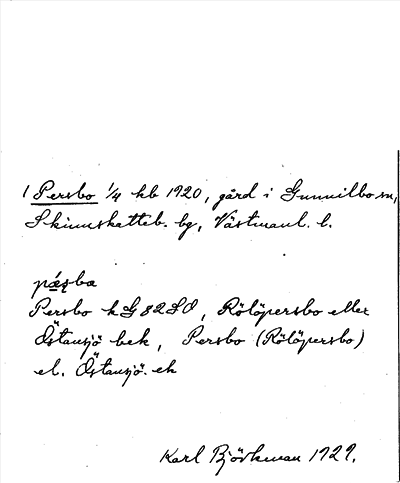 1 Persbo 1/4 kb 1920, gård i Gunnilbo sn,
Skinnskatteb. bg, Västmanl. l.
pæ̨ʂba
Persbo kG82SO, Rölöpersbo eller
Östansjö bek, Persbo (Rölöpersbo)
el. Östansjö. ek
Karl Björkman 1929.